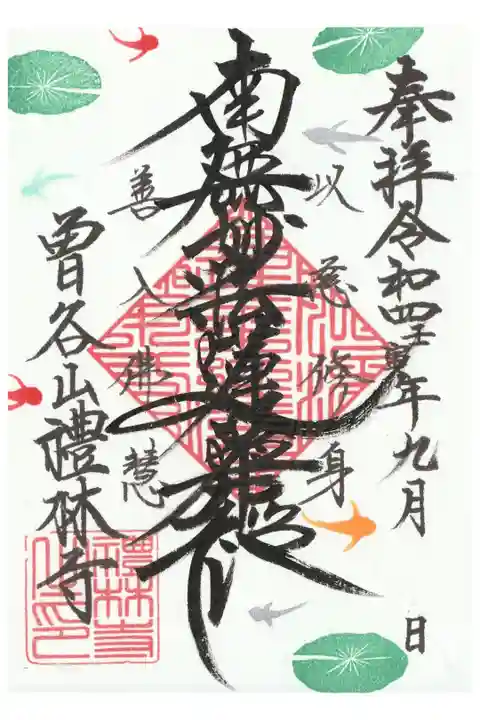 奉拝 令和四壬寅年九月 日
以慈修身
南無妙法蓮華経
善入佛慧
曽谷山 禮林寺
禮林寺